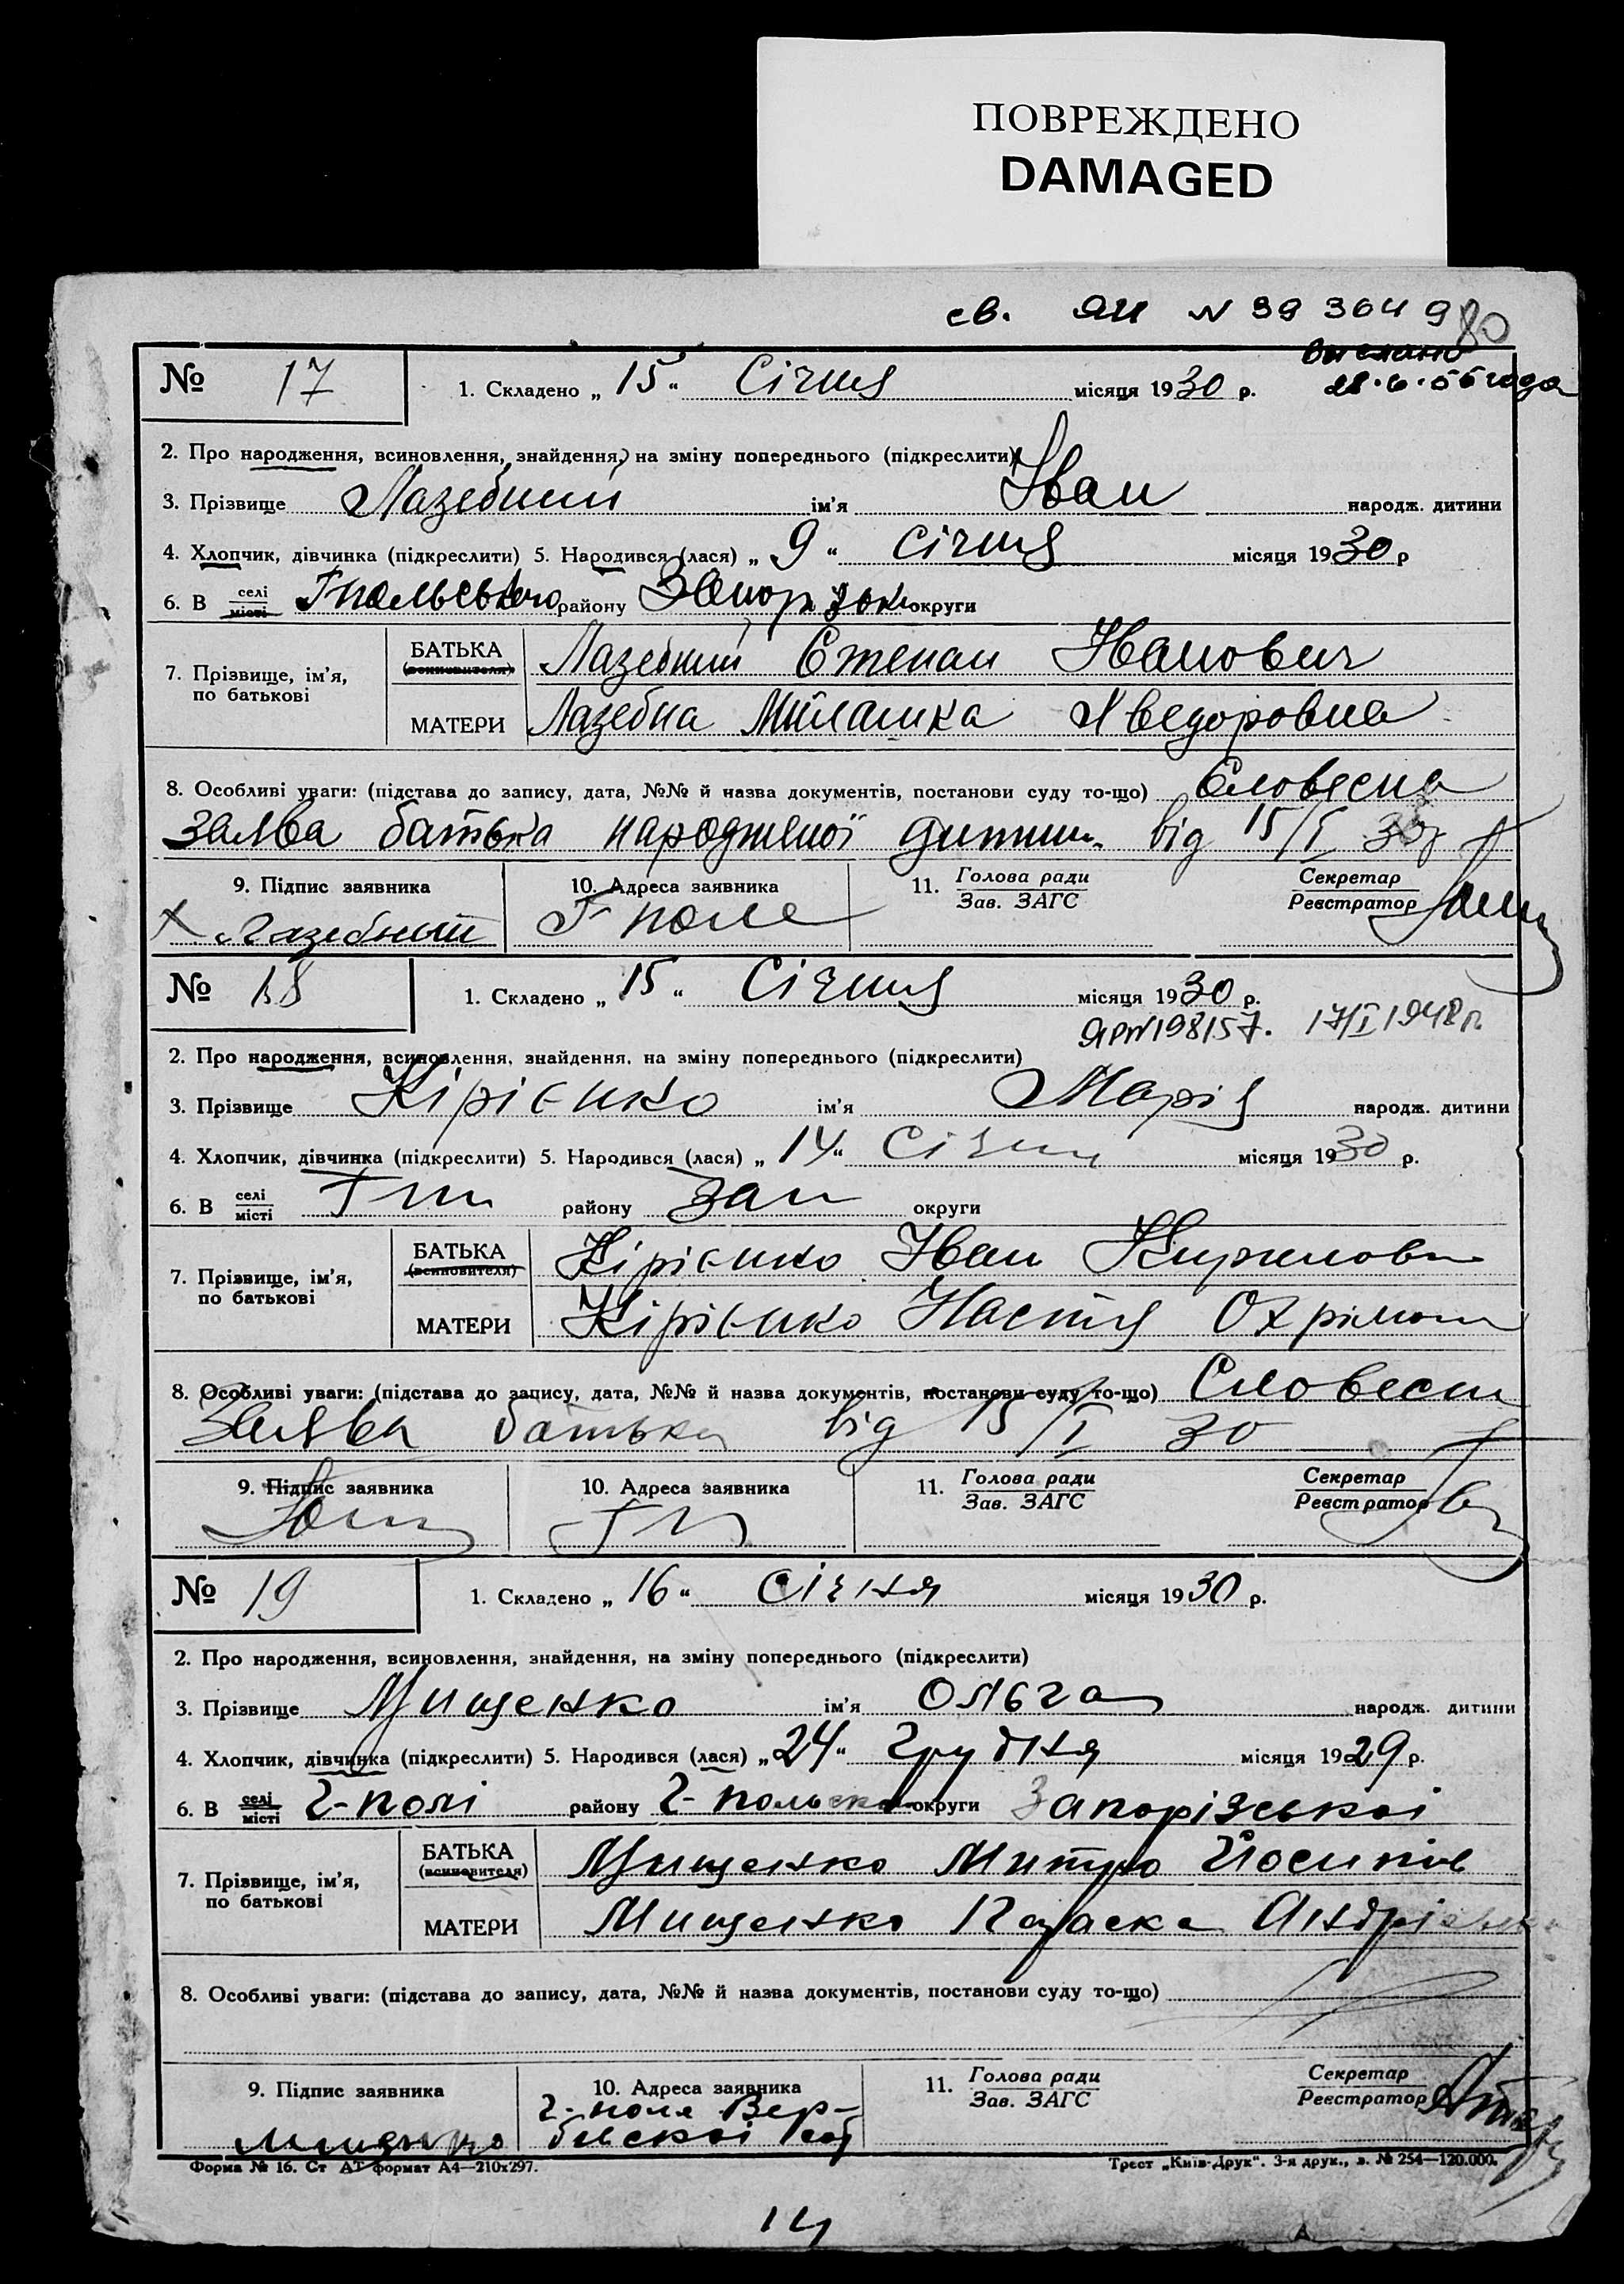 ПОВРЕЖДЕНО
DAMAGED
св. ЯЦ N 39 3649 80
выслано
28.6.56 года
№ 17 1. Складено „ 15 “ Січня місяця 1930 р.
2. Про народження, всиновлення, знайдення, на зміну попереднього (підкреслити)
3. Прізвище Лазебний ім’я Іван народж. дитини
4. Хлопчик, дівчинка (підкреслити) 5. Народився (лася) „ 9 “ січня місяця 1930 р
6. В селі місті Гпольського району Запорізок округи
7. Прізвище, ім’я, по батькові
БАТЬКА (всиновителя) Лазебний Степан Іванович
МАТЕРИ Лазебна Хведоровна
8. Особливі уваги: (підстава до запису, дата, №№ й назва документів, постанови суду то-що) Словесна
заява батька народженої дитини від 15/I 30р
9. Підпис заявника 10. Адреса заявника 11. Голова ради Зав. ЗАГС Секретар Реєстратор
Лазебный Г-поле
№ 18 1. Складено „ 15 “ Січня місяця 1930 р.
ЯР N198157. 17/I 1948 г.
2. Про народження, всиновлення, знайдення, на зміну попереднього (підкреслити)
3. Прізвище Кірієнко ім’я Марія народж. дитини
4. Хлопчик, дівчинка (підкреслити) 5. Народився (лася) „ 14 “ Січня місяця 1930 р.
6. В селі місті Гпп району Зап округи
7. Прізвище, ім’я, по батькові
БАТЬКА (всиновителя) Кірієнко Іван Кирилови
МАТЕРИ Кірієнко Настя Охрімов
8. Особливі уваги: (підстава до запису, дата, №№ й назва документів, постанови суду то-що) Словесн
Заява батька від 15/I 30
9. Підпис заявника 10. Адреса заявника 11. Голова ради Зав. ЗАГС Секретар Реєстратор
Гп
№ 19 1. Складено „ 16 “ січня місяця 1930 р.
2. Про народження, всиновлення, знайдення, на зміну попереднього (підкреслити)
3. Прізвище Мищенко ім’я Ольга народж. дитини
4. Хлопчик, дівчинка (підкреслити) 5. Народився (лася) „ 24 “ грудня місяця 1929 р.
6. В селі місті Г-полі району Г-польско округи Запорізської
7. Прізвище, ім’я, по батькові
БАТЬКА (всиновителя) Мищенко Митро Йосипів
МАТЕРИ Мищенко Параска Андрієвна
8. Особливі уваги: (підстава до запису, дата, №№ й назва документів, постанови суду то-що)
9. Підпис заявника 10. Адреса заявника 11. Голова ради Зав. ЗАГС Секретар Реєстратор
Г-поле Вер-
Мищенко
Форма № 16. Ст АТ формат А4—210х297. Трест „Київ-Друк“. 3-я друк., з. № 254—120.000.
14
А